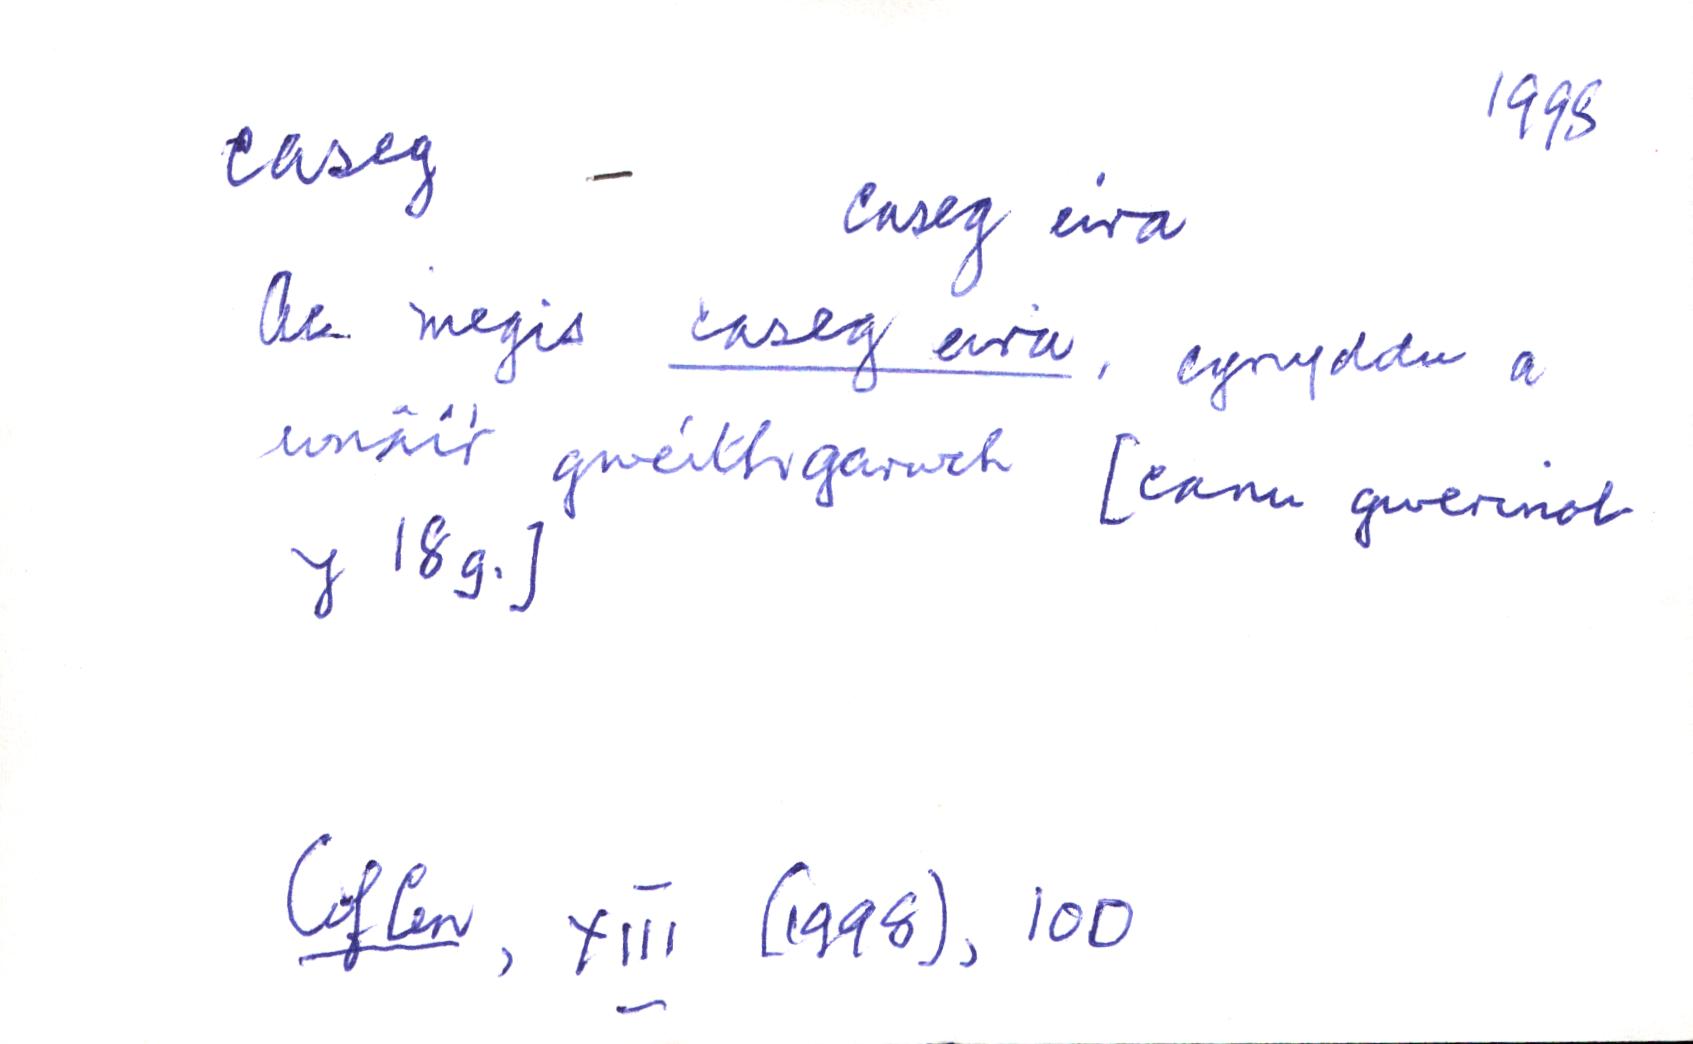 1998
caseg –
caseg eira
Ac megis caseg eira, cynyddu a
wnâi'r gweithgarwch [canu gwerinol
y 18g.]
Cof Cen, XIII (1998), 100